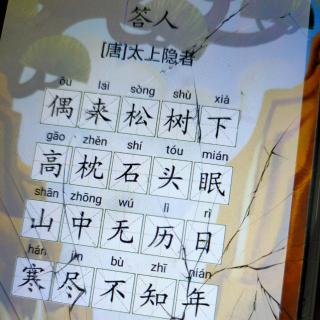 答人
[唐]太上隐者
ǒu lái sòng shù xià
偶来松树下
gāo zhěn shí tóu mián
高枕石头眠
shān zhōng wú lì rì
山中无历日
hán jìn bù zhī nián
寒尽不知年